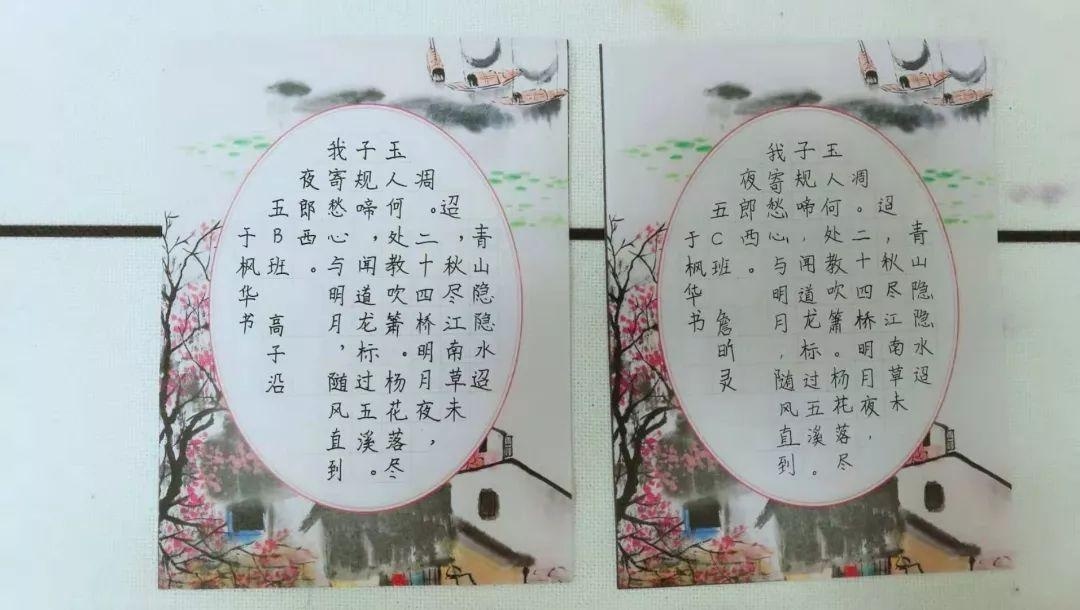 青山隐隐水迢
迢，秋尽江南草未
凋。二十四桥明月夜，
玉人何处教吹箫。杨花落尽
子规啼，闻道龙标过五溪。
我寄愁心与明月，随风直到
夜郎西。
五B班 高子沿
于枫华书
青山隐隐水迢
迢，秋尽江南草未
凋。二十四桥明月夜，
玉人何处教吹箫。杨花落尽
子规啼，闻道龙标过五溪。
我寄愁心与明月，随风直到
夜郎西。
五C班 詹昕灵
于枫华书